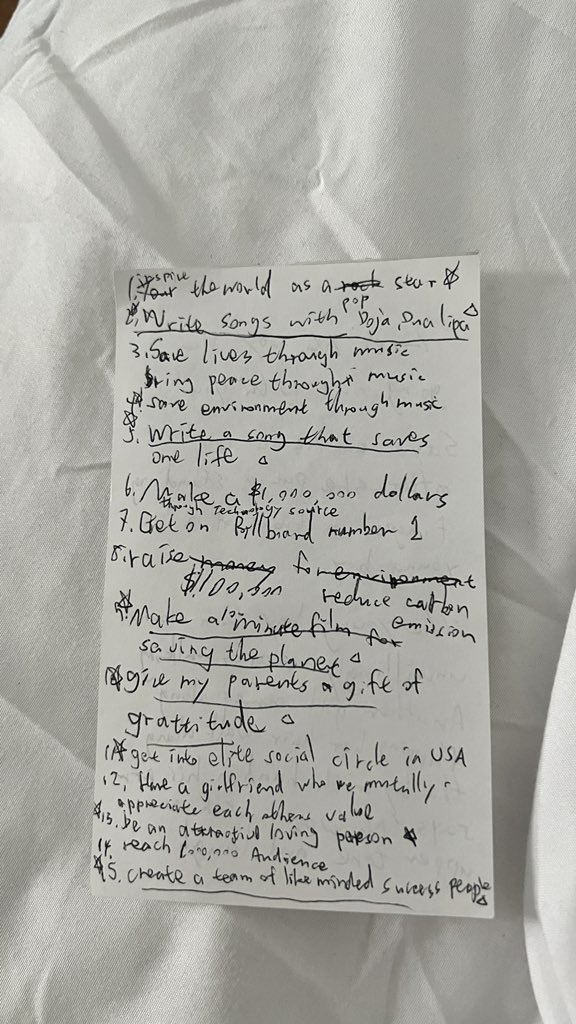 inspire
1. the world as a rock star
pop
2. Write songs with Doja, Dua lipa
3. Save lives through music
bring peace through music
4. save environment through music
5. Write a song that saves
one life
6. Make a $1,000,000 dollars
through Technology source
7. Get on Billboard number 1
8. raise money for environment
$100,000 reduce carbon
emission
9. Make a 10 minute film for
saving the planet
10. give my parents a gift of
grattitude
11. get into elite social circle in USA
12. Have a girlfriend who we mutally
appreciate each others value
13. be an attractive loving person
14. reach 1,000,000 Audience
15. create a team of like minded success people